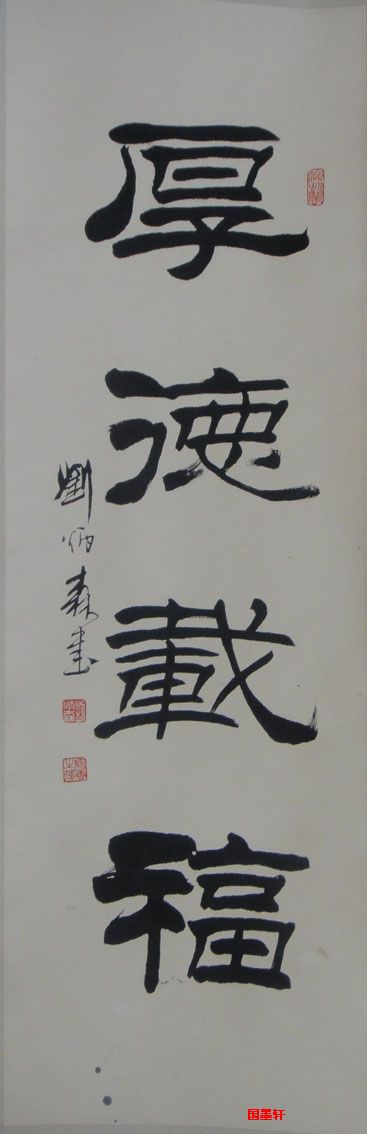 厚德載福
劉炳森書
国墨轩